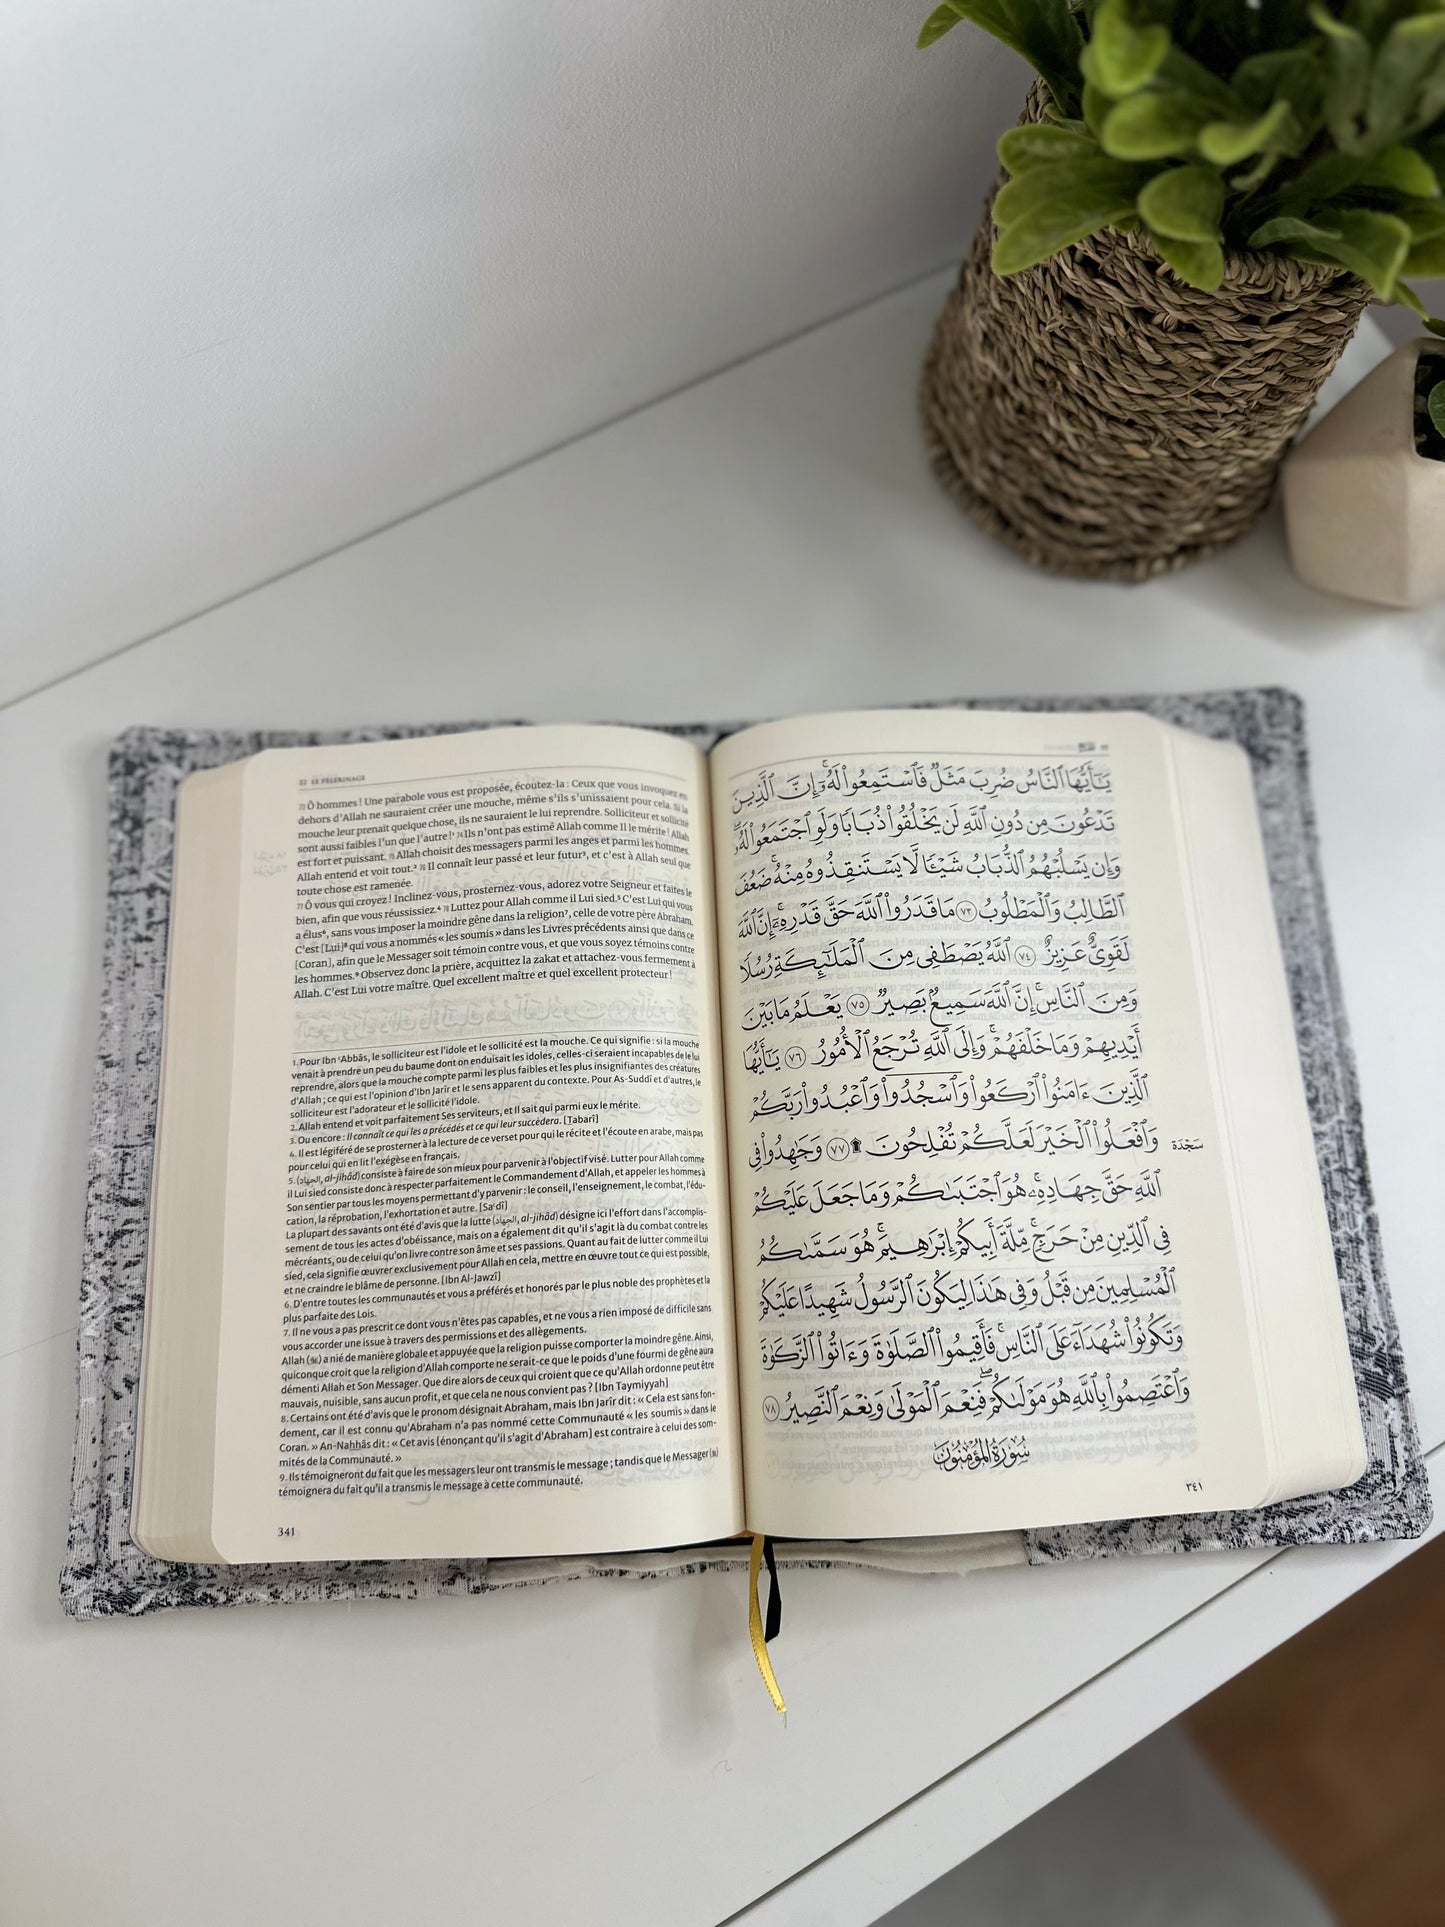 22 LE PÈLERINAGE
73 Ô hommes ! Une parabole vous est proposée, écoutez-la : Ceux que vous invoquez en
dehors d'Allah ne sauraient créer une mouche, même s'ils s'unissaient pour cela. Si la
mouche leur prenait quelque chose, ils ne sauraient le lui reprendre. Solliciteur et sollicité
sont aussi faibles l'un que l'autre !¹ 74 Ils n'ont pas estimé Allah comme Il le mérite ! Allah
est fort et puissant. 75 Allah choisit des messagers parmi les anges et parmi les hommes.
Allah entend et voit tout.² 76 Il connaît leur passé et leur futur³, et c'est à Allah seul que
toute chose est ramenée.
77 Ô vous qui croyez ! Inclinez-vous, prosternez-vous, adorez votre Seigneur et faites le
bien, afin que vous réussissiez.⁴ 78 Luttez pour Allah comme il Lui sied.⁵ C'est Lui qui vous
a élus⁶, sans vous imposer la moindre gêne dans la religion⁷, celle de votre père Abraham.
C'est [Lui]⁸ qui vous a nommés « les soumis » dans les Livres précédents ainsi que dans ce
[Coran], afin que le Messager soit témoin contre vous, et que vous soyez témoins contre
les hommes.⁹ Observez donc la prière, acquittez la zakat et attachez-vous fermement à
Allah. C'est Lui votre maître. Quel excellent maître et quel excellent protecteur !
1. Pour Ibn ʿAbbâs, le solliciteur est l'idole et le sollicité est la mouche. Ce qui signifie : si la mouche
venait à prendre un peu du baume dont on enduisait les idoles, celles-ci seraient incapables de le lui
reprendre, alors que la mouche compte parmi les plus faibles et les plus insignifiantes des créatures
d'Allah ; ce qui est l'opinion d'Ibn Jarîr et le sens apparent du contexte. Pour As-Suddî et d'autres, le
solliciteur est l'adorateur et le sollicité l'idole.
2. Allah entend et voit parfaitement Ses serviteurs, et Il sait qui parmi eux le mérite.
3. Ou encore : Il connaît ce qui les a précédés et ce qui leur succèdera. [Tabarî]
4. Il est légiféré de se prosterner à la lecture de ce verset pour qui le récite et l'écoute en arabe, mais pas
pour celui qui en lit l'exégèse en français.
5. (الجهاد, al-jihâd) consiste à faire de son mieux pour parvenir à l'objectif visé. Lutter pour Allah comme
il Lui sied consiste donc à respecter parfaitement le Commandement d'Allah, et appeler les hommes à
Son sentier par tous les moyens permettant d'y parvenir : le conseil, l'enseignement, le combat, l'édu-
cation, la réprobation, l'exhortation et autre. [Saʿdî]
La plupart des savants ont été d'avis que la lutte (الجهاد, al-jihâd) désigne ici l'effort dans l'accomplis-
sement de tous les actes d'obéissance, mais on a également dit qu'il s'agit là du combat contre les
mécréants, ou de celui qu'on livre contre son âme et ses passions. Quant au fait de lutter comme il Lui
sied, cela signifie œuvrer exclusivement pour Allah en cela, mettre en œuvre tout ce qui est possible,
et ne craindre le blâme de personne. [Ibn Al-Jawzî]
6. D'entre toutes les communautés et vous a préférés et honorés par le plus noble des prophètes et la
plus parfaite des Lois.
7. Il ne vous a pas prescrit ce dont vous n'êtes pas capables, et ne vous a rien imposé de difficile sans
vous accorder une issue à travers des permissions et des allègements.
Allah (ﷻ) a nié de manière globale et appuyée que la religion puisse comporter la moindre gêne. Ainsi,
quiconque croit que la religion d'Allah comporte ne serait-ce que le poids d'une fourmi de gêne aura
démenti Allah et Son Messager. Que dire alors de ceux qui croient que ce qu'Allah ordonne peut être
mauvais, nuisible, sans aucun profit, et que cela ne nous convient pas ? [Ibn Taymiyyah]
8. Certains ont été d'avis que le pronom désignait Abraham, mais Ibn Jarîr dit : « Cela est sans fon-
dement, car il est connu qu'Abraham n'a pas nommé cette Communauté « les soumis » dans le
Coran. » An-Nahhâs dit : « Cet avis (énonçant qu'il s'agit d'Abraham) est contraire à celui des som-
mités de la Communauté. »
9. Ils témoigneront du fait que les messagers leur ont transmis le message ; tandis que le Messager (ﷺ)
témoignera du fait qu'il a transmis le message à cette communauté.
341
يَٰٓأَيُّهَا ٱلنَّاسُ ضُرِبَ مَثَلٌ فَٱسْتَمِعُوا۟ لَهُۥٓ ۚ إِنَّ ٱلَّذِينَ
تَدْعُونَ مِن دُونِ ٱللَّهِ لَن يَخْلُقُوا۟ ذُبَابًا وَلَوِ ٱجْتَمَعُوا۟ لَهُۥ ۖ
وَإِن يَسْلُبْهُمُ ٱلذُّبَابُ شَيْـًٔا لَّا يَسْتَنقِذُوهُ مِنْهُ ۚ ضَعُفَ
ٱلطَّالِبُ وَٱلْمَطْلُوبُ ٧٣ مَا قَدَرُوا۟ ٱللَّهَ حَقَّ قَدْرِهِۦٓ ۗ إِنَّ ٱللَّهَ
لَقَوِىٌّ عَزِيزٌ ٧٤ ٱللَّهُ يَصْطَفِى مِنَ ٱلْمَلَٰٓئِكَةِ رُسُلًا
وَمِنَ ٱلنَّاسِ ۚ إِنَّ ٱللَّهَ سَمِيعٌۢ بَصِيرٌ ٧٥ يَعْلَمُ مَا بَيْنَ
أَيْدِيهِمْ وَمَا خَلْفَهُمْ ۗ وَإِلَى ٱللَّهِ تُرْجَعُ ٱلْأُمُورُ ٧٦ يَٰٓأَيُّهَا
ٱلَّذِينَ ءَامَنُوا۟ ٱرْكَعُوا۟ وَٱسْجُدُوا۟ وَٱعْبُدُوا۟ رَبَّكُمْ
وَٱفْعَلُوا۟ ٱلْخَيْرَ لَعَلَّكُمْ تُفْلِحُونَ ۩ ٧٧ وَجَٰهِدُوا۟ فِى
سَجْدَة
ٱللَّهِ حَقَّ جِهَادِهِۦ ۚ هُوَ ٱجْتَبَىٰكُمْ وَمَا جَعَلَ عَلَيْكُمْ
فِى ٱلدِّينِ مِنْ حَرَجٍ ۚ مِّلَّةَ أَبِيكُمْ إِبْرَٰهِيمَ ۚ هُوَ سَمَّىٰكُمُ
ٱلْمُسْلِمِينَ مِن قَبْلُ وَفِى هَٰذَا لِيَكُونَ ٱلرَّسُولُ شَهِيدًا عَلَيْكُمْ
وَتَكُونُوا۟ شُهَدَآءَ عَلَى ٱلنَّاسِ ۚ فَأَقِيمُوا۟ ٱلصَّلَوٰةَ وَءَاتُوا۟ ٱلزَّكَوٰةَ
وَٱعْتَصِمُوا۟ بِٱللَّهِ هُوَ مَوْلَىٰكُمْ ۖ فَنِعْمَ ٱلْمَوْلَىٰ وَنِعْمَ ٱلنَّصِيرُ ٧٨
سُورَةُ المُؤْمِنُونَ
٣٤١